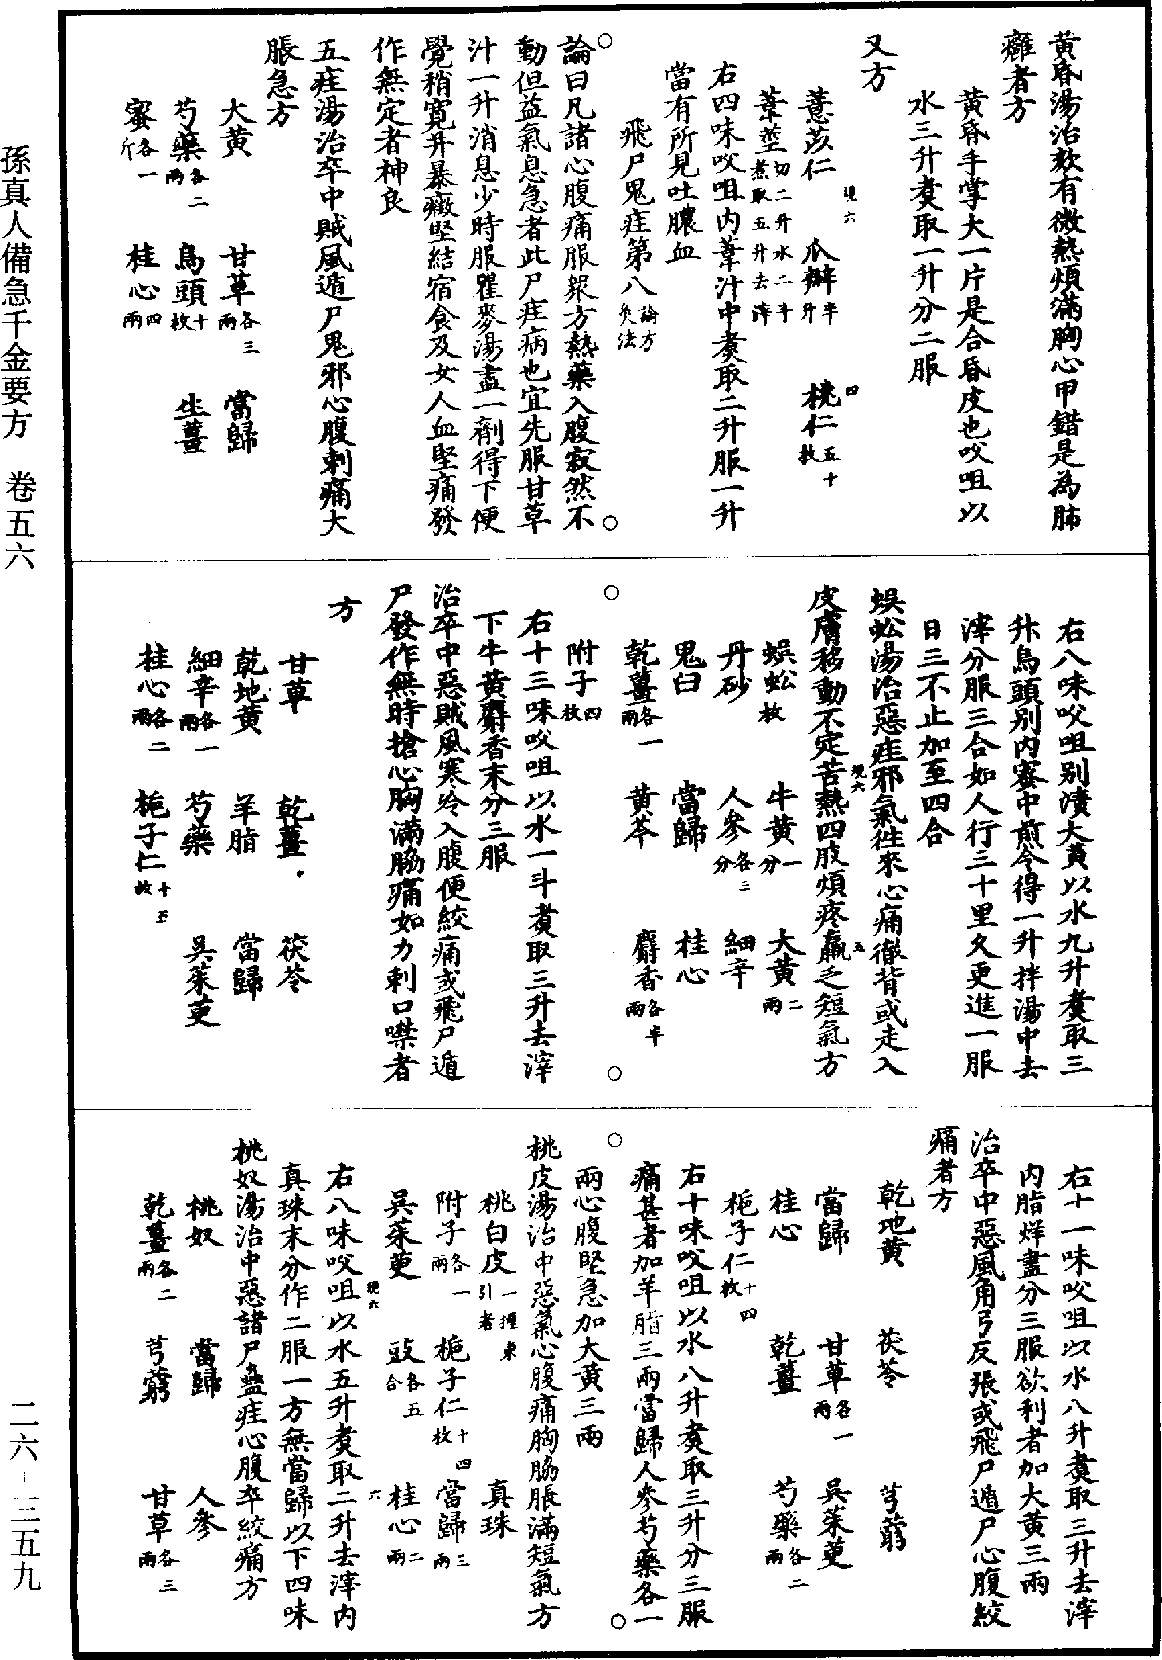 黃昏湯治欬有微熱煩滿胸心甲錯是為肺
癰者方
黃昏手掌大一片是合昏皮也㕮咀以
水三升煑取一升分二服
又方
薏苡仁 瓜瓣半升 桃仁五十枚
葦莖切二升水二斗煮取五升去滓
右四味㕮咀内葦汁中煑取二升服一升
當有所見吐膿血
飛尸鬼疰第八論方灸法
論曰凡諸心腹痛服衆方熱藥入腹寂然不
動但益氣息急者此尸疰病也宜先服甘草
汁一升消息少時服瞿麥湯盡一劑得下便
覺稍寬并暴癥堅結宿食及女人血堅痛發
作無定者神良
五疰湯治卒中賊風遁尸鬼邪心腹刺痛大
脹急方
大黃 甘草各三兩 當歸
芍藥各二兩 烏頭十枚 生薑
蜜各一斤 桂心四兩
右八味㕮咀别漬大黃以水九升煑取三
升烏頭别内蜜中煎令得一升拌湯中去
滓分服三合如人行三十里久更進一服
日三不止加至四合
蜈蚣湯治惡疰邪氣徃來心痛徹背或走入
皮膚移動不定苦熱四肢煩疼羸乏短氣方
蜈蚣枚 牛黃一分 大黃二兩
丹砂 人參各三分 細辛
鬼臼 當歸 桂心
乾薑各一兩 黃芩 麝香各半兩
附子四枚
右十三味㕮咀以水一斗煑取三升去滓
下牛黃麝香末分三服
治卒中惡賊風寒冷入腹便絞痛或飛尸遁
尸發作無時搶心胸滿脇痛如刀刺口噤者
方
甘草 乾薑 茯苓
乾地黃 羊脂 當歸
細辛各一兩 芍藥 吳茱萸
桂心各二兩 梔子仁十五枚
右十一味㕮咀以水八升煑取三升去滓
内脂烊盡分三服欲利者加大黃三兩
治卒中惡風角弓反張或飛尸遁尸心腹絞
痛者方
乾地黃 茯苓 芎藭
當歸 甘草各一兩 吳茱萸
桂心 乾薑 芍藥各二兩
梔子仁十四枚
右十味㕮咀以水八升煑取三升分三服
痛甚者加羊脂三兩當歸人參芍藥各一
兩心腹堅急加大黃三兩
桃皮湯治中惡氣心腹痛胸脇脹滿短氣方
桃白皮一握東引者 真珠
附子各一兩 梔子仁十四枚 當歸三兩
吳茱萸 豉各五合 桂心二兩
右八味㕮咀以水五升煑取二升去滓内
真珠末分作二服一方無當歸以下四味
桃奴湯治中惡諸尸蠱疰心腹卒絞痛方
桃奴 當歸 人參
乾薑各二兩 芎藭 甘草各三兩
孫真人備急千金要方 卷五六
二六-三五九